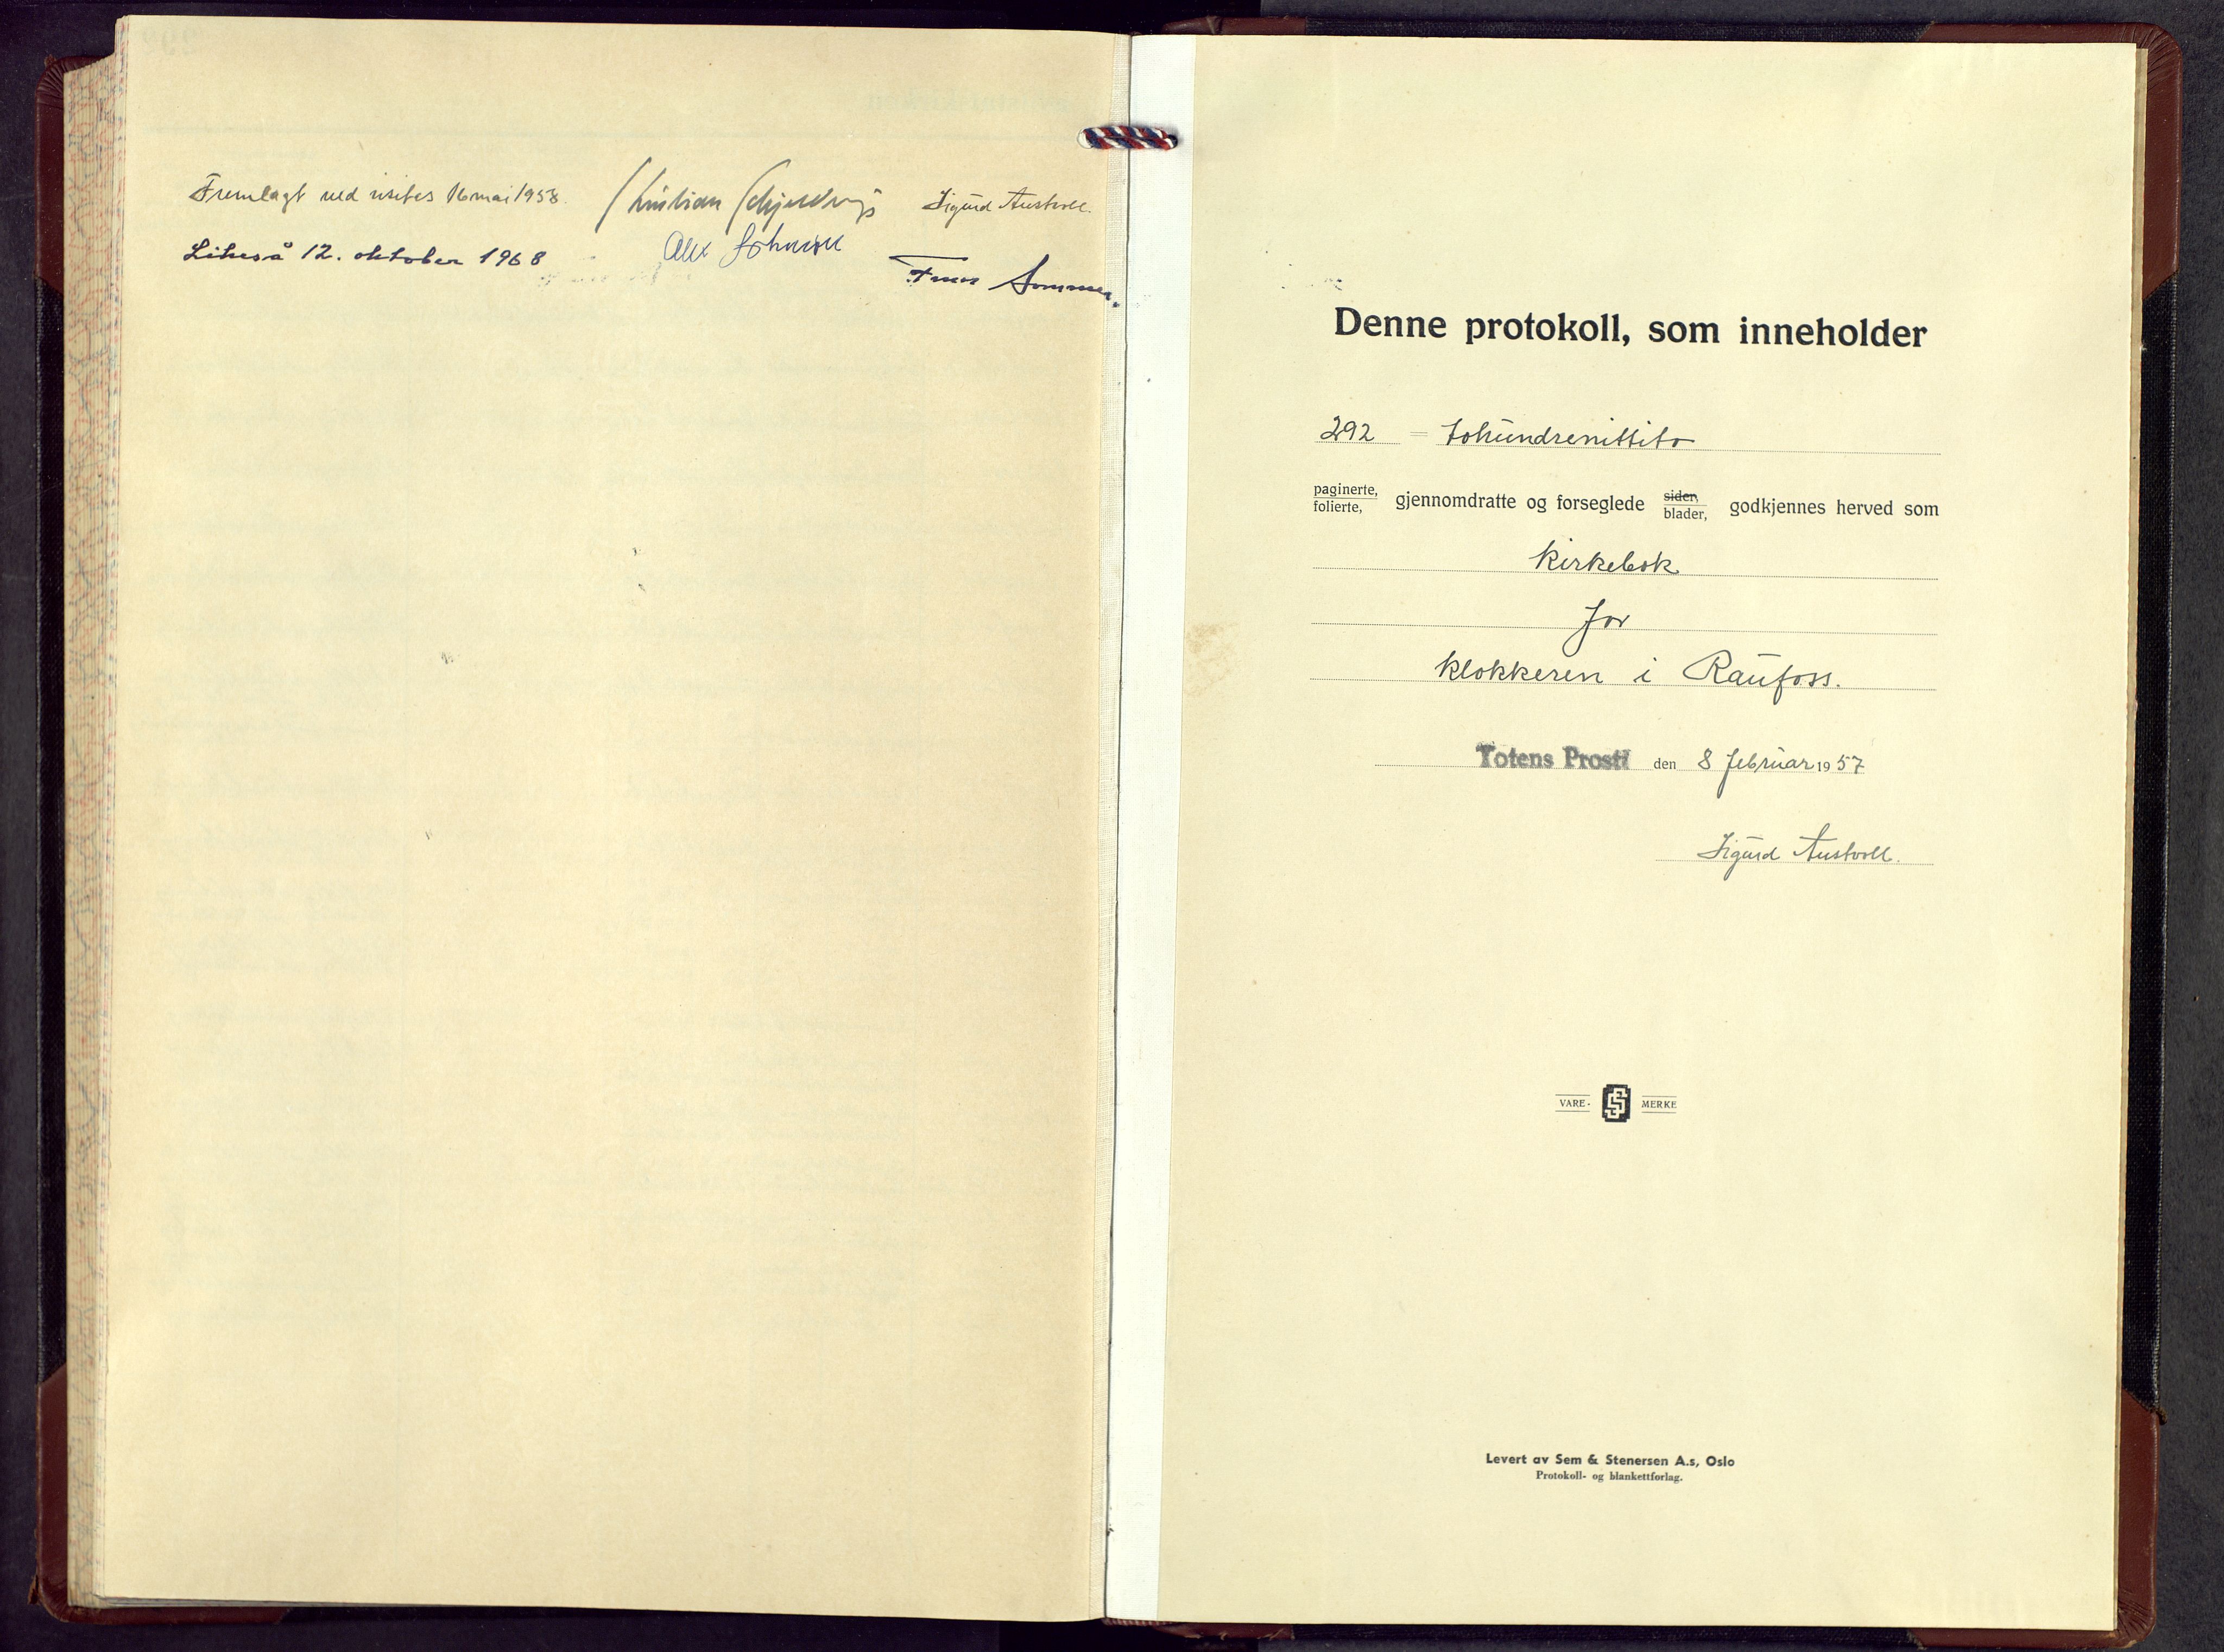 Fremlagt ved visitas 16 mai 1958. Kristian Schjelderup Sigurd Austvoll.
Likeså 12. oktober 1968 Alex Johnson
Sommer.
Denne protokoll, som inneholder
292 = tohundrenittito
paginerte, folierte, gjennomdratte og forseglede sider, blader, godkjennes herved som
kirkebok
for
klokkeren i Raufoss.
Totens Prosti den 8 februar 1957
Sigurd Austvoll.
VARE- SS MERKE
Levert av Sem & Stenersen A.s, Oslo
Protokoll- og blankettforlag.